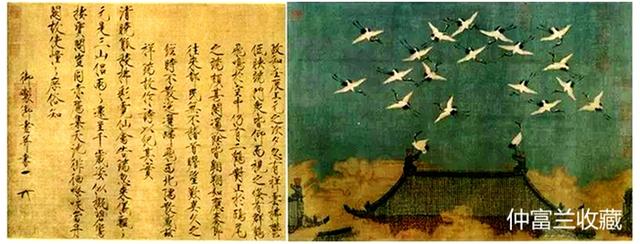 政和壬辰上元之次夕忽有祥雲拂鬱
低映端門衆皆仰而視之倏有群鶴
飛鳴於空中仍有二鶴對止於鴟尾
之端頗甚閑適餘皆翱翔如應奏節
往來都民無不稽首瞻望歎異久之
經時不散迤邐歸飛西北隅散感茲
祥瑞故作詩以紀其實
清曉觚稜拂彩霓仙禽告瑞忽來儀飄飄
元是三山侶兩兩還呈千歲姿似擬碧鸞
棲寶閣豈同赤鴈集天池徘徊嘹唳當丹
闕故使憧憧庶俗知
御製御畫并書
仲富兰收藏